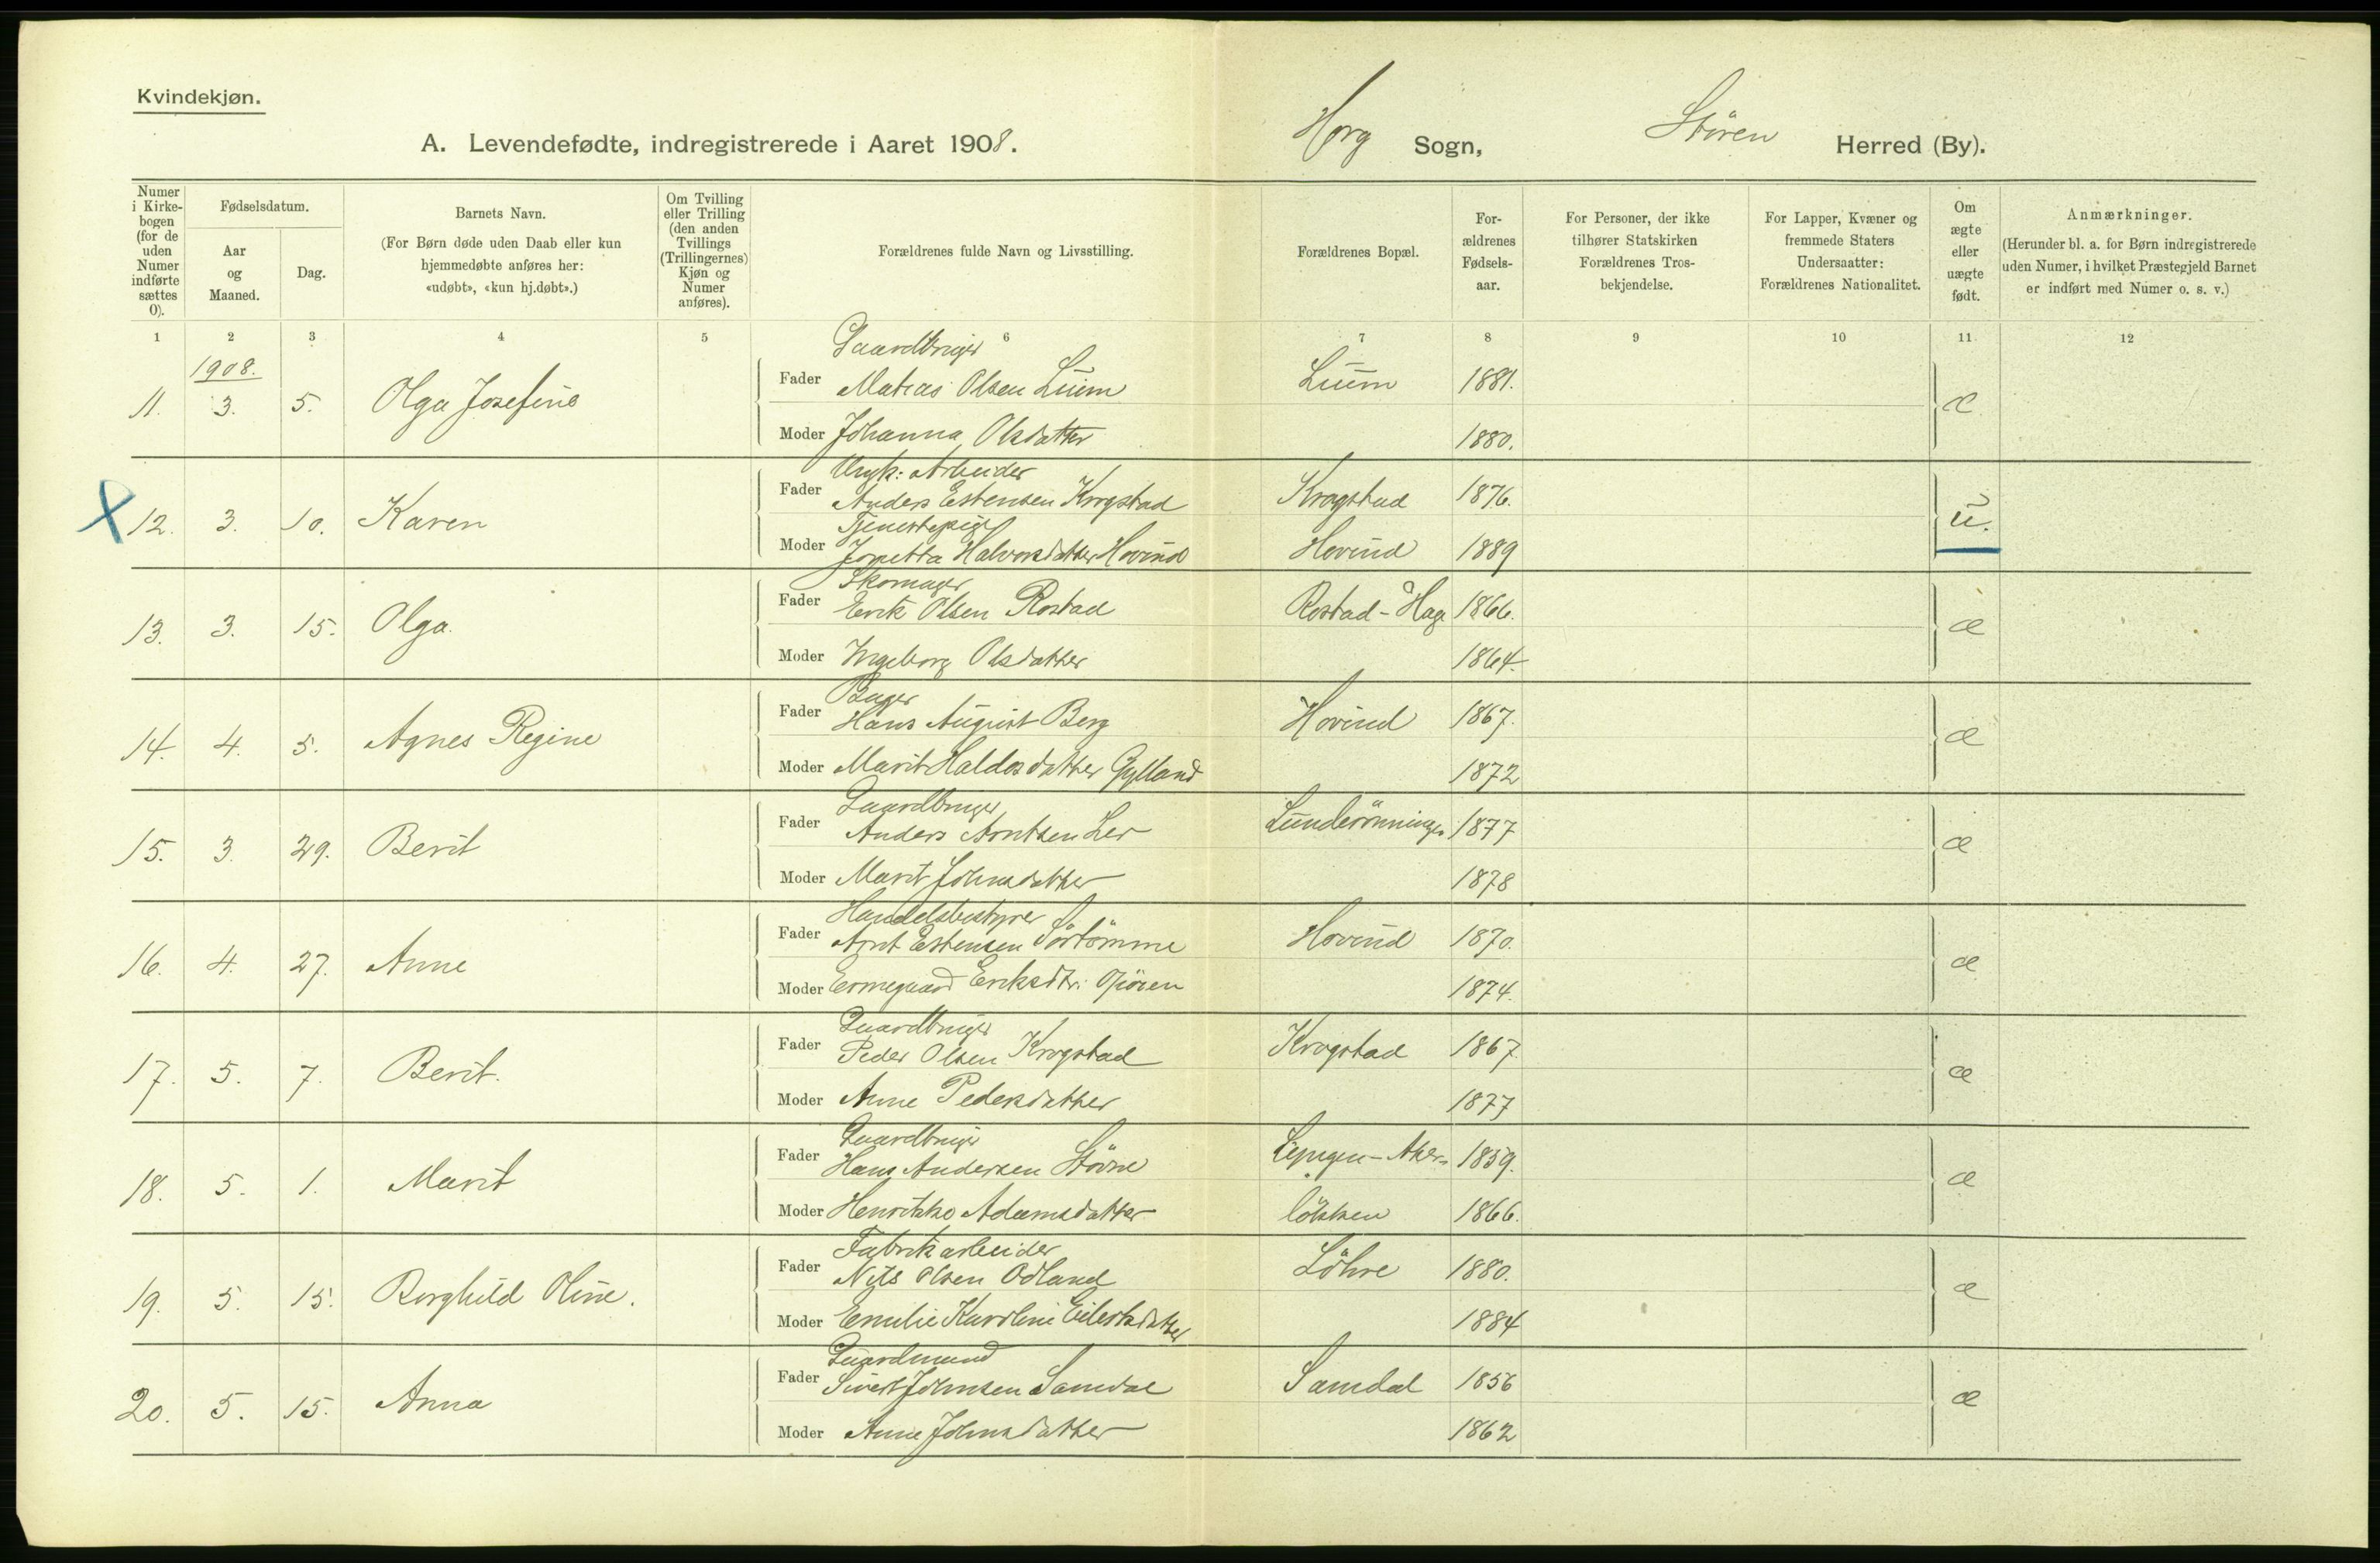 Kvindekjøn.
A. Levendefødte, indregistrerede i Aaret 1908.
Horg Sogn, Stören Herred (By).
Numer i Kirkebogen (for de uden Numer indførte sættes 0).
Fødselsdatum.
Aar og Maaned.
Dag.
Barnets Navn.
(For Børn døde uden Daab eller kun hjemmedøbte anføres her: «udøbt», «kun hj.døbt».)
Om Tvilling eller Trilling (den anden Tvillings (Trillingernes) Kjøn og Numer anføres).
Forældrenes fulde Navn og Livsstilling.
Forældrenes Bopæl.
Forældrenes Fødselsaar.
For Personer, der ikke tilhører Statskirken Forældrenes Trosbekjendelse.
For Lapper, Kvæner og fremmede Staters Undersaatter: Forældrenes Nationalitet.
Om ægte eller uægte født.
Anmærkninger.
(Herunder bl. a. for Børn indregistrerede uden Numer, i hvilket Præstegjeld Barnet er indført med Numer o. s. v.)
1 2 3 4 5 6 7 8 9 10 11 12
1908.
Gaardbruger
11. 3. 5. Olga Josefine Fader Matias Olsen Luim Luim 1881. æ
Moder Johanna Olsdatter 1880.
Arbeider
X 12. 3. 10. Karen Fader Anders Estensen Krogstad Krogstad 1876. u.
Tjenestepige
Moder Jonetta Halvorsdatter Hovind Hovind 1889
Skomager
13. 3. 15. Olga. Fader Erik Olsen Rostad Rostad-Hage 1866. æ
Moder Ingeborg Olsdatter 1864.
Bager
14. 4. 5. Agnes Regine Fader Hans August Berg Hovind 1867. æ
Moder Marit Haldosdatter Gylland 1872
Gaardbruger
15. 3. 29. Berit Fader Anders Arntsen Ler 1877 æ
Moder Marit Johnsdatter 1878
Handelsbestyrer
16. 4. 27. Anne Fader Arnt Estensen Sörtömme Hovind 1870. æ
Moder Ermegaard Eriksdtr. 1874.
Gaardbruger
17. 5. 7. Berit. Fader Peder Olsen Krogstad Krogstad 1867. æ
Moder Anne Pedersdatter 1877
Gaardbruger
18. 5. 1. Marit Fader Hans Andersen Stövne 1859. æ
Moder Adamsdatter lökken 1866.
Fabrikarbeider
19. 5. 15. Borghild Oline. Fader Nils Olsen Ödland Löhre 1880. æ
Moder Emilie Karoline Eilertsdatter 1884
Gaardmand
20. 5. 15. Anna Fader Sivert Johnsen Samdal Samdal 1856 æ
Moder Anne Johnsdatter 1862